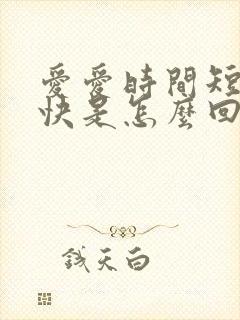 愛愛時間短
快是怎麼回
錢天白